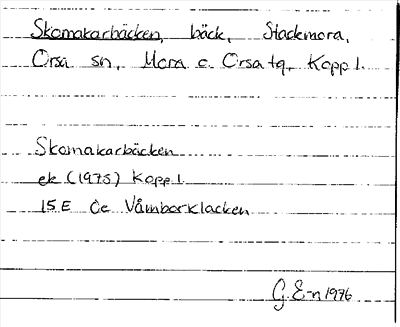 Skomakarbäcken, bäck, Stackmora,
Orsa sn, Mora o. Orsa tg, Kopp l.
Skomakarbäcken
ek (1975) Kopp l.
15 E 0e Våmborklacken
G. E-n 1976